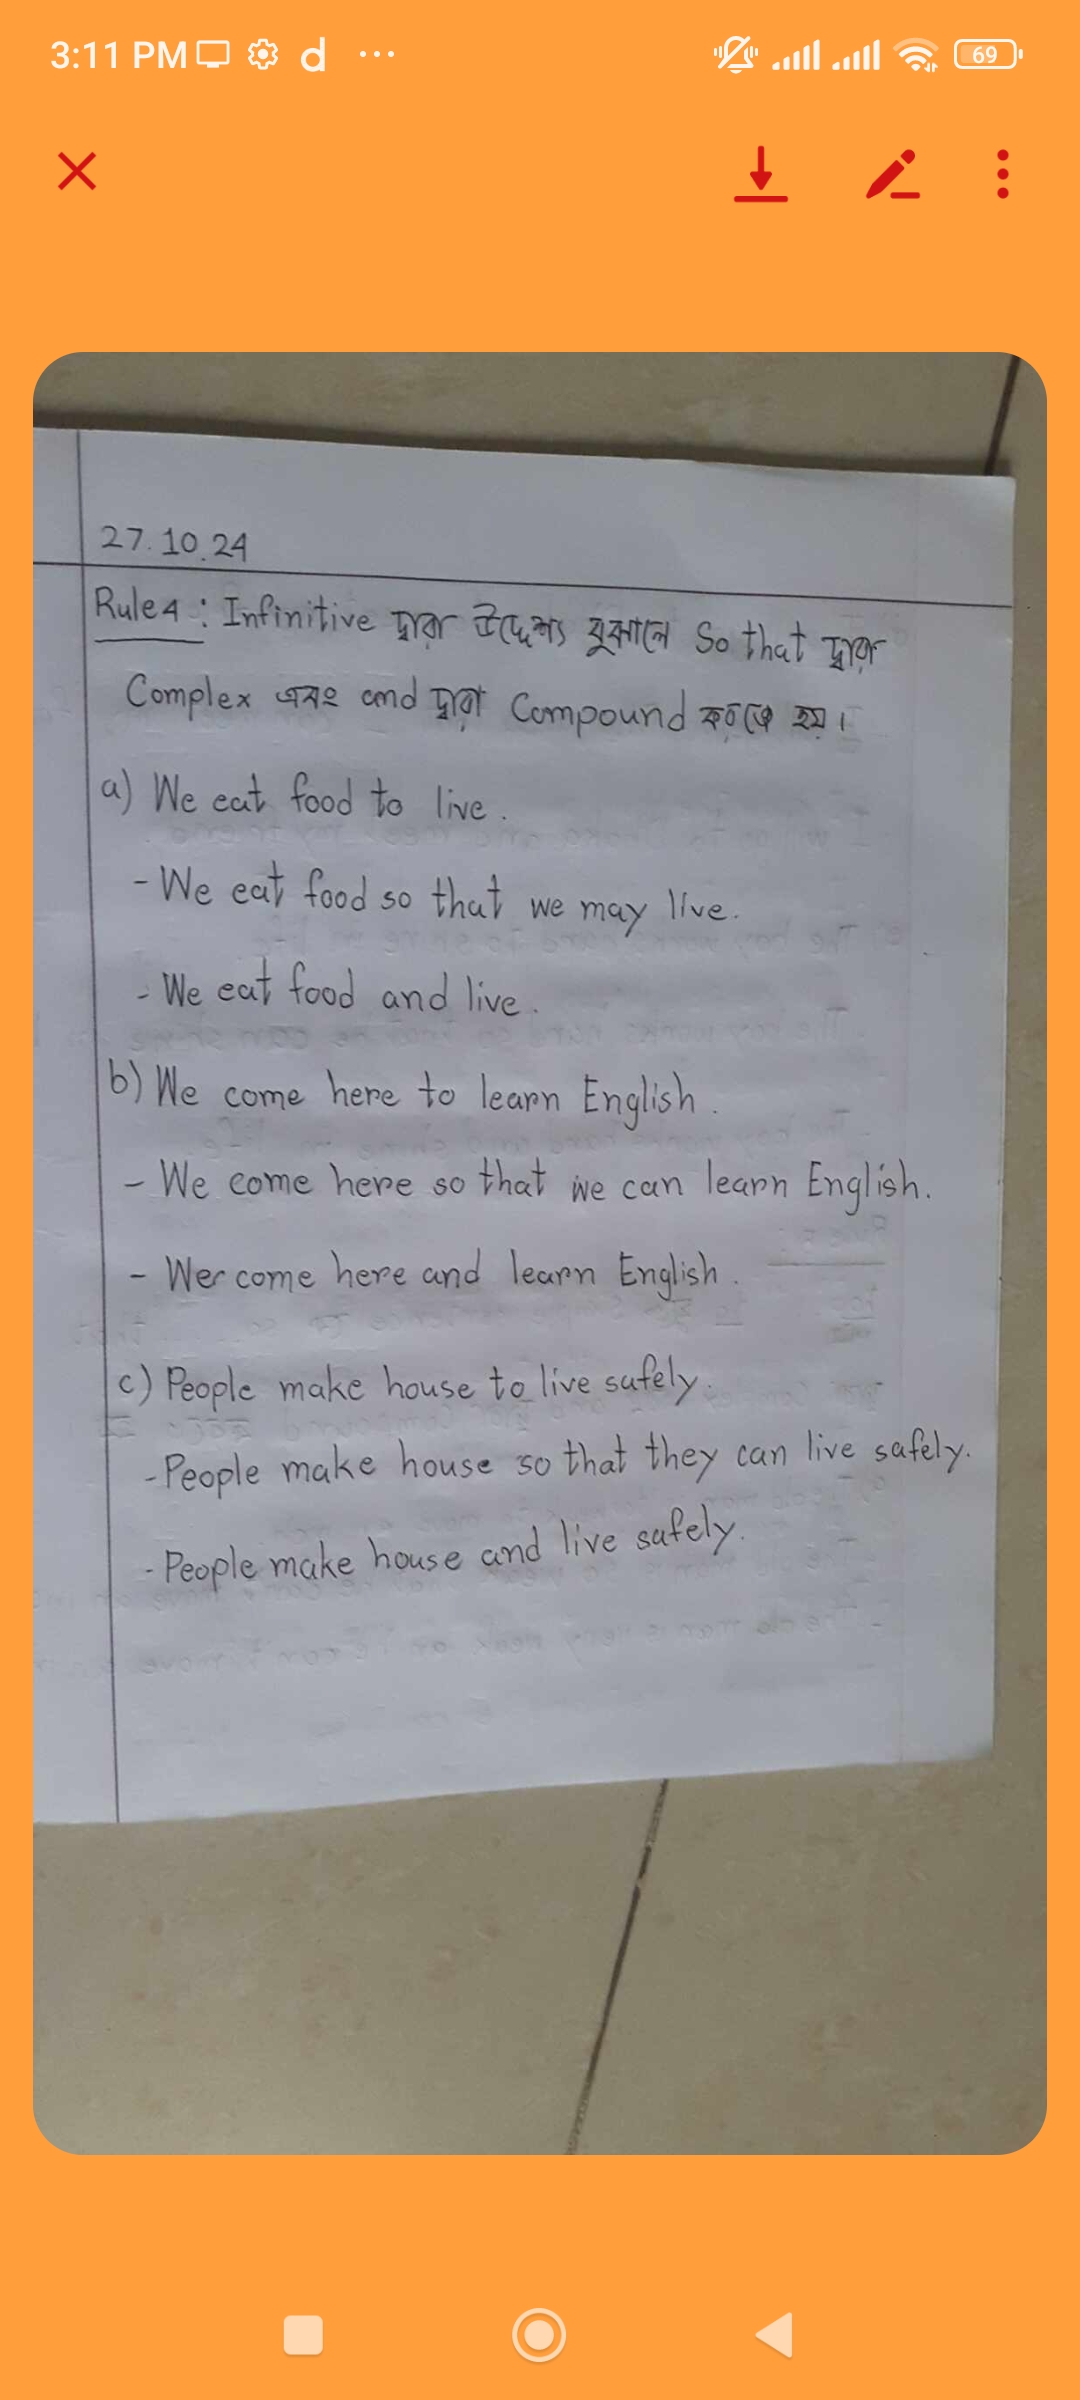 3:11 PM d ...
69
27.10.24
Rule 4 : Infinitive দ্বারা উদ্দেশ্য বুঝালে So that দ্বারা
Complex এবং and দ্বারা Compound করতে হয়।
a) We eat food to live.
- We eat food so that we may live.
- We eat food and live.
b) We come here to learn English.
- We come here so that we can learn English.
- We come here and learn English.
c) People make house to live safely.
- People make house so that they can live safely.
- People make house and live safely.